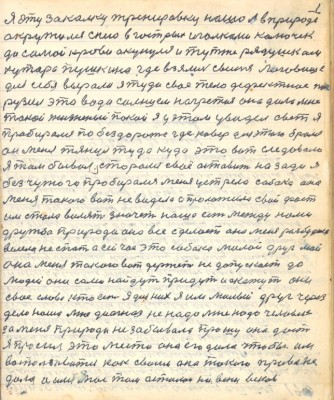 1
Я эту закалку тренировку нашо Я в природе
окружился снего в гострые иголками колючек
до самой крови окунулся и тутже рядышком
хутара пушкино где взялись свиня логовище
для себя вырали я туда свае тело дефектное по
рузил это вода самшеи нагретоя она дала мне
такой жизненый покой я утром увидел свет я
пробирался по бездороже где ковер этом брали
он меня тянул туда куда это вот следовало
я там бывал, старался своё оставить на зади я
без чужого пробирался меня встрело собака она
меня такого вот не видела с трохотили свой хвост
им стала вилять значит наше есть между нами
дружба природа ано все сделает ана меня разбудила
велела не спать а сейчас это собака милой друг мой
она меня такого вот держит не допускает до
людей они сами найдут придут и скажут они
свае слово кто есть Я для них я им милый друг через
дело нашо мне диагноза не надо мне надо человек
за меня природа не забывала прошу она дает
Я просил это место она его дала чтобы им
вользоватися как своим она такого права не
дала а имя твое там осталось на веки веков